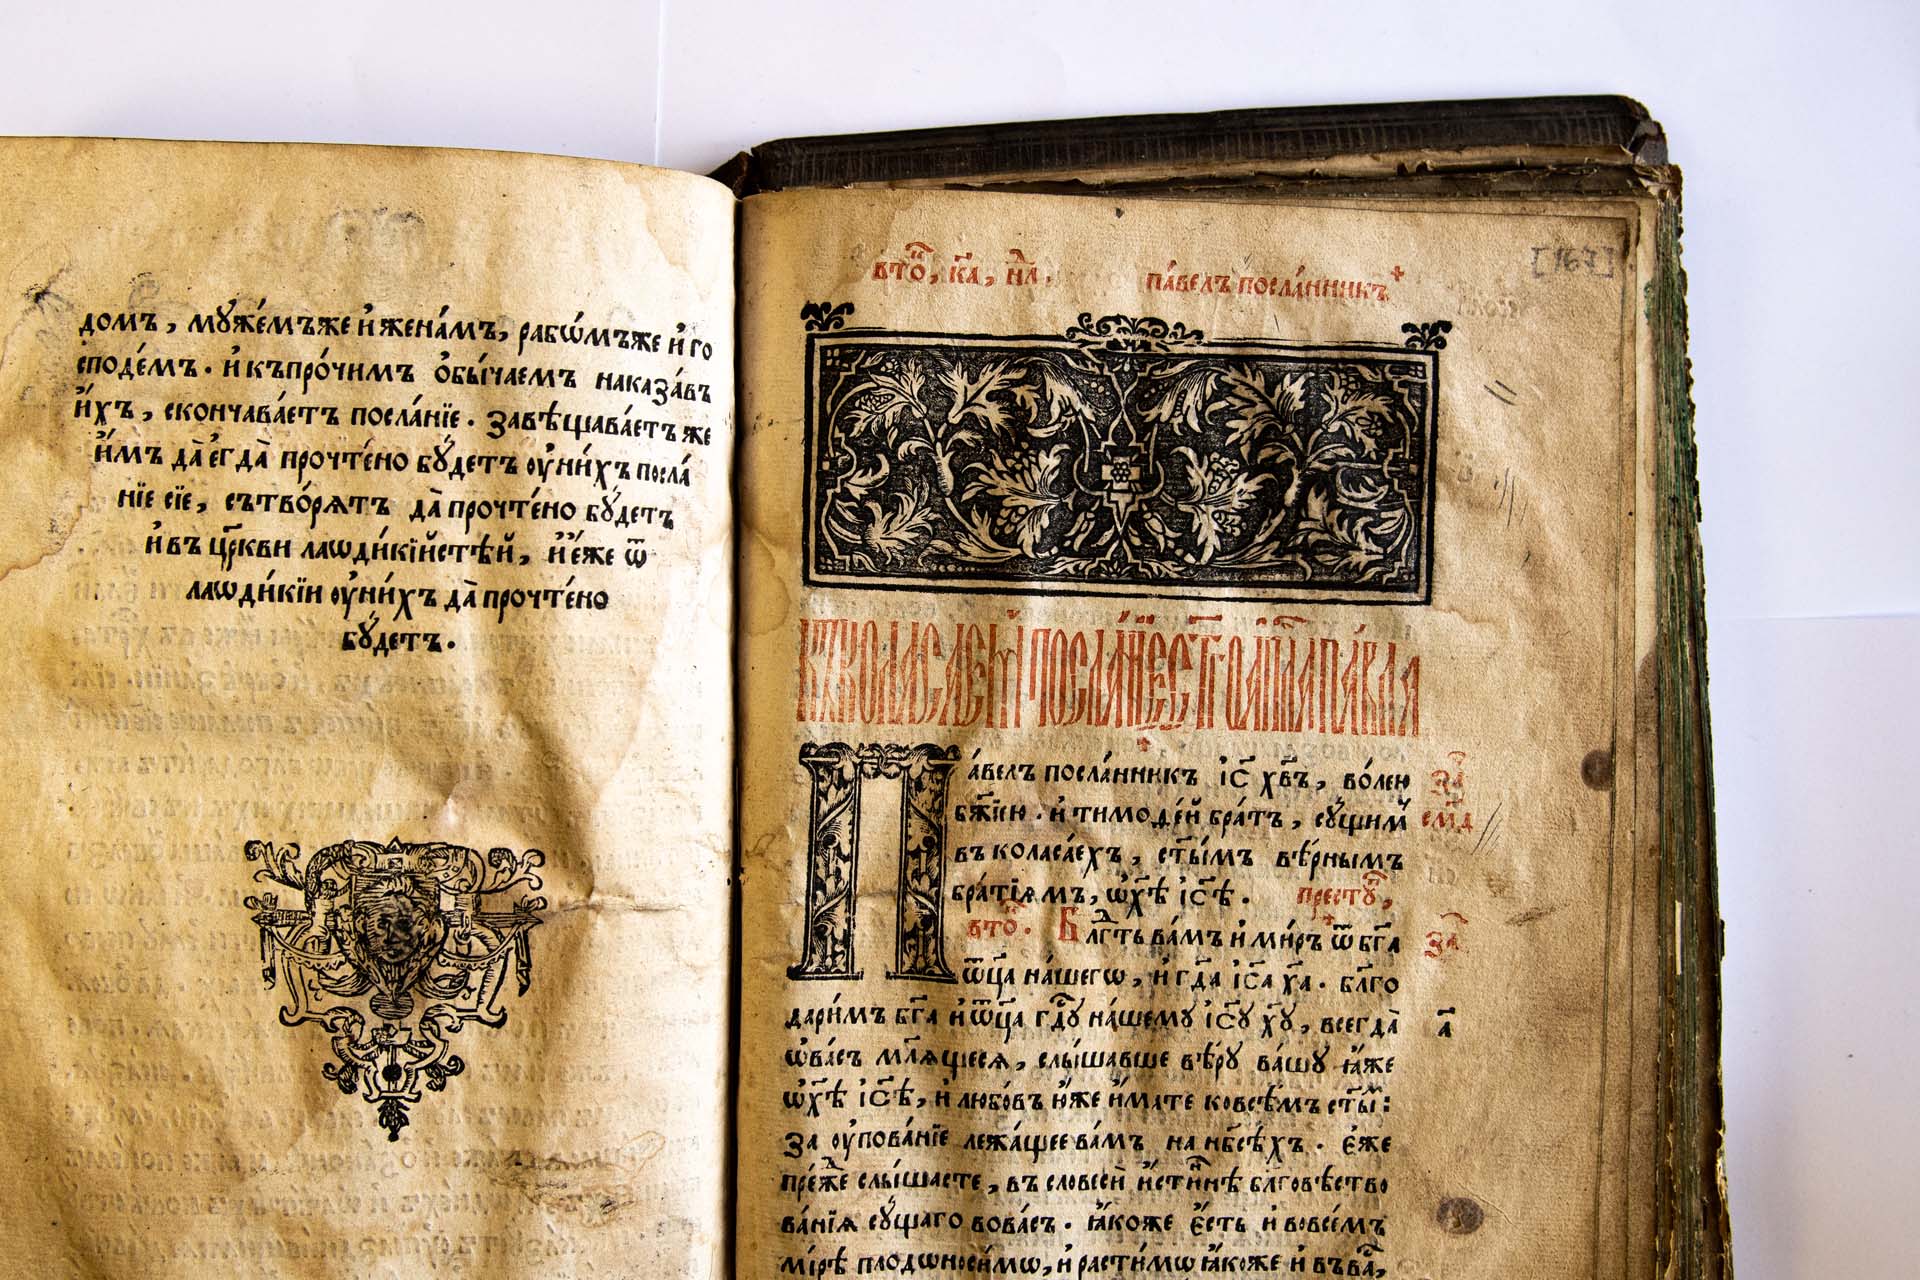 домъ, мꙋже́мъже и҆ жена́мъ, рабѡ́мъже и҆ го
споде́мъ. и҆ къпро́чимъ ѻ҆бы́чаемъ наказа́въ
и҆́хъ, скончава́етъ посла́нїе. завѣщава́етъ же
и҆́мъ да̀ є҆гда̀ прочте́но бꙋ́детъ ᲂу҆ни́хъ посла́
нїе сїе, сътво́рѧтъ да̀ прочте́но бꙋ́детъ
и҆ въ цр҃кви лаѡди́кїйстѣй, и҆ є҆́же ѿ
лаѡди́кїи ᲂу҆ни́хъ да̀ прочте́но
бꙋ́детъ.
[167]
па́велъ посла́нникъ
къ коласаєⷨ посла́нїе ст҃го а҆пⷭ҇ла па́вла
Па́велъ посла́нникъ і҆с хв҃ъ, во́лею
бж҃їею. и҆ тимоѳе́й бра́тъ, сꙋ́щимⸯ
въ коласа́ехъ, ст҃ы́мъ вѣ́рнымъ
бра́тїѧмъ, ѡ҆хⷭ҇ѣ і҆с҃ѣ.
Блгⷣть ва́мъ и҆ ми́ръ ѿ бг҃а
ѿц҃а на́шегѡ, и҆ гдⷭ҇а і҆с҃а х҃а. блг҃о
дари́мъ бг҃а и҆ ѿц҃а гдⷭ҇ꙋ на́шемꙋ і҆сꙋ хꙋ, всегда̀
ѡ҆ва́съ мл҃ѧщесѧ, слы́шавше вѣ́рꙋ ва́шꙋ ꙗ҆́же
ѡ҆хⷭ҇ѣ і҆с҃ѣ, и҆ любо́въ ю҆́же и҆́мате ковсѣ́мъ ст҃ы́мⸯ:
за ᲂу҆пова́нїе лежа́щее ва́мъ на нб҃сѣ́хъ. є҆́же
пре́жⷣе слы́шасте, въ словесѝ и҆́стиннѣ блговѣство
ва́нїѧ сꙋ́щаго вова́съ. ꙗ҆́коже є҆́сть и҆ вовсе́мъ
ми́рѣ плодоноси́мѡ, и҆ расти́мѡ ꙗ҆́коже и҆ въва́,